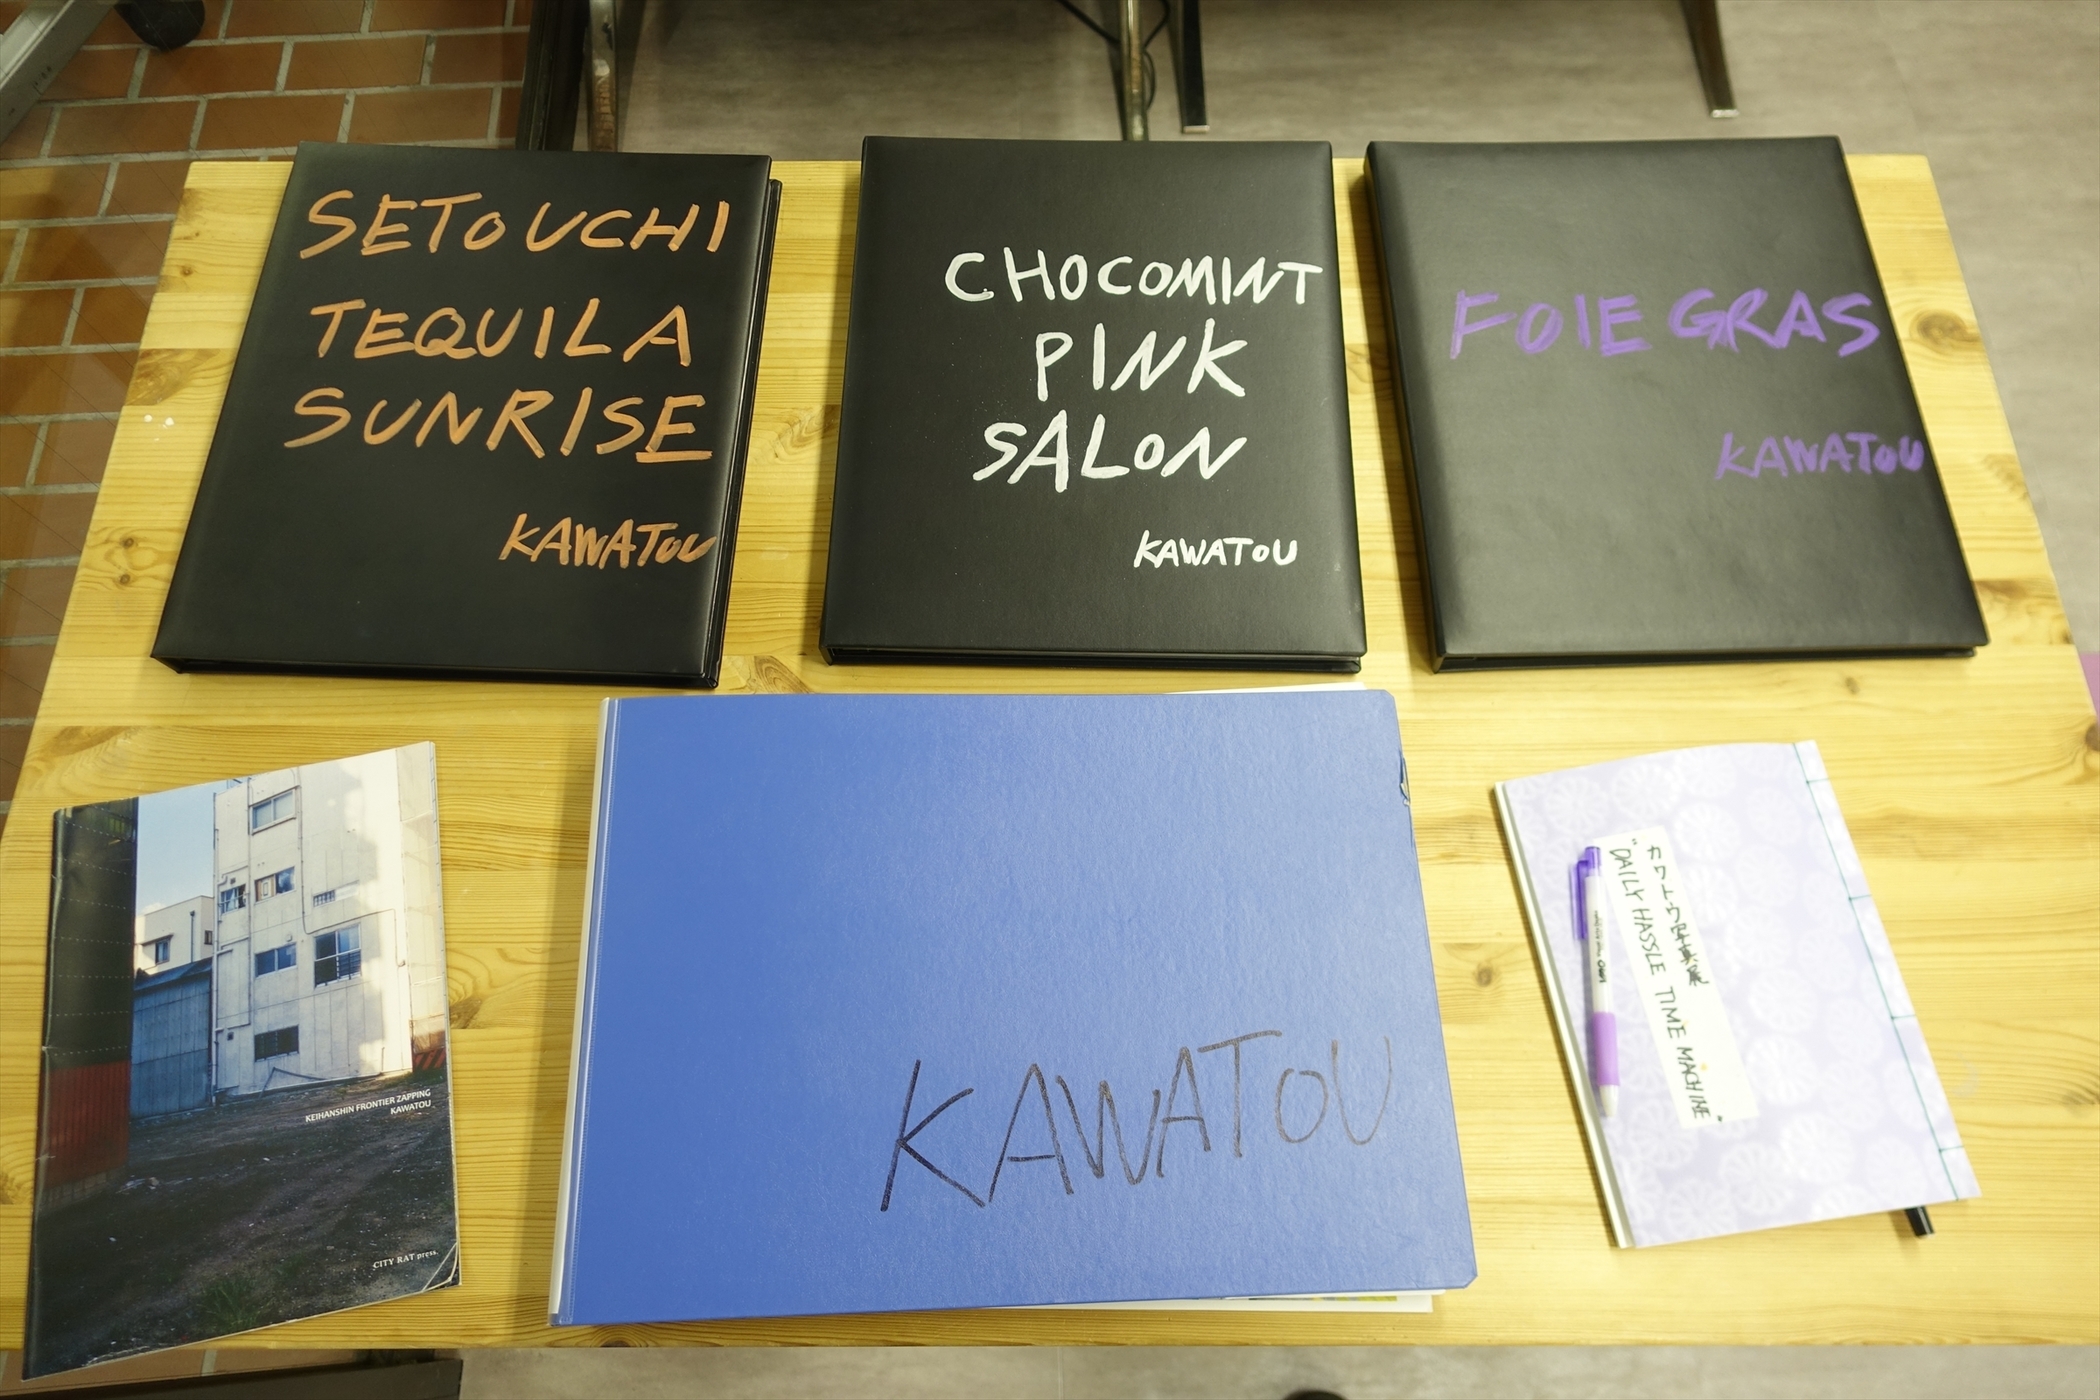 SETOUCHI
TEQUILA
SUNRISE
KAWATOU
CHOCOMINT
PINK
SALON
KAWATOU
FOIE GRAS
KAWATOU
KEIHANSHIN FRONTIER ZAPPING
KAWATOU
CITY RAT press.
KAWATOU
カワトウ写真展
"DAILY HASSLE TIME MACHINE"